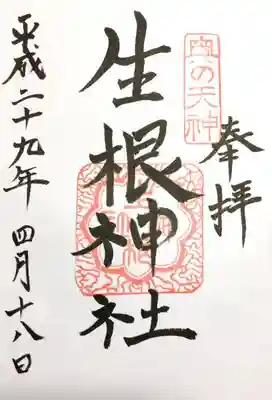 奉拝
奥の天神
生根神社
平成二十九年 四月十八日